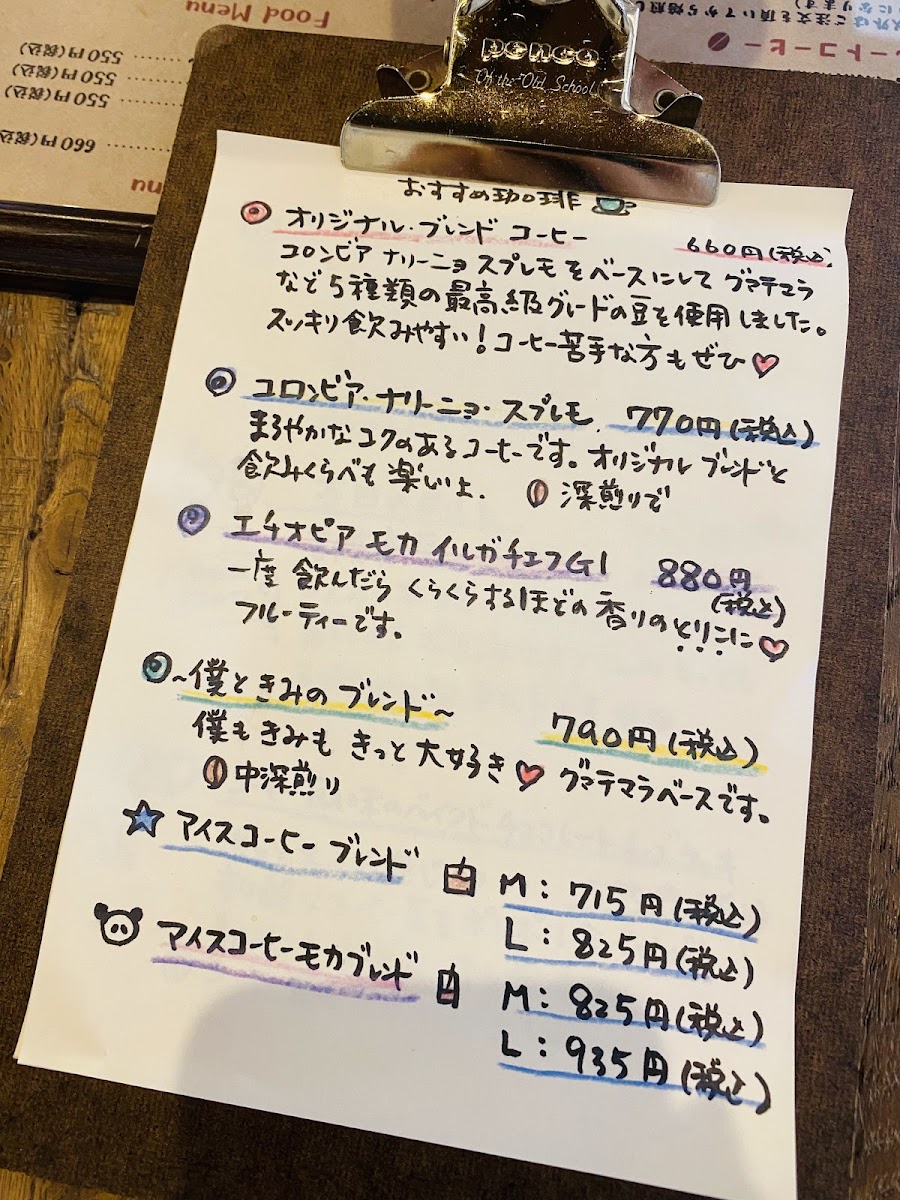 penco
"Of the Old School"
おすすめ珈琲
オリジナル・ブレンド コーヒー 660円(税込)
コロンビア ナリーニョ スプレモをベースにして グマテマラ
など5種類の最高級グレードの豆を使用しました。
スッキリ飲みやすい!コーヒー苦手な方もぜひ♥
コロンビア・ナリーニョ・スプレモ. 770円(税込)
まろやかなコクのあるコーヒーです。オリジナル ブレンドと
飲みくらべも楽しいよ. 深煎りで
エチオピア モカ イルガチェフG1 880円
(税込)
一度 飲んだら くらくらするほどの香りのとりこに♥
フルーティーです。
~僕ときみの ブレンド~ 790円(税込)
僕もきみも きっと大好き♥ グマテマラベースです。
中深煎り
アイスコーヒー ブレンド M:715円(税込)
L:825円(税込)
アイスコーヒーモカブレンド M:825円(税込)
L:935円(税込)
Food Menu
550円(税込)
550円(税込)
550円(税込)
660円(税込)